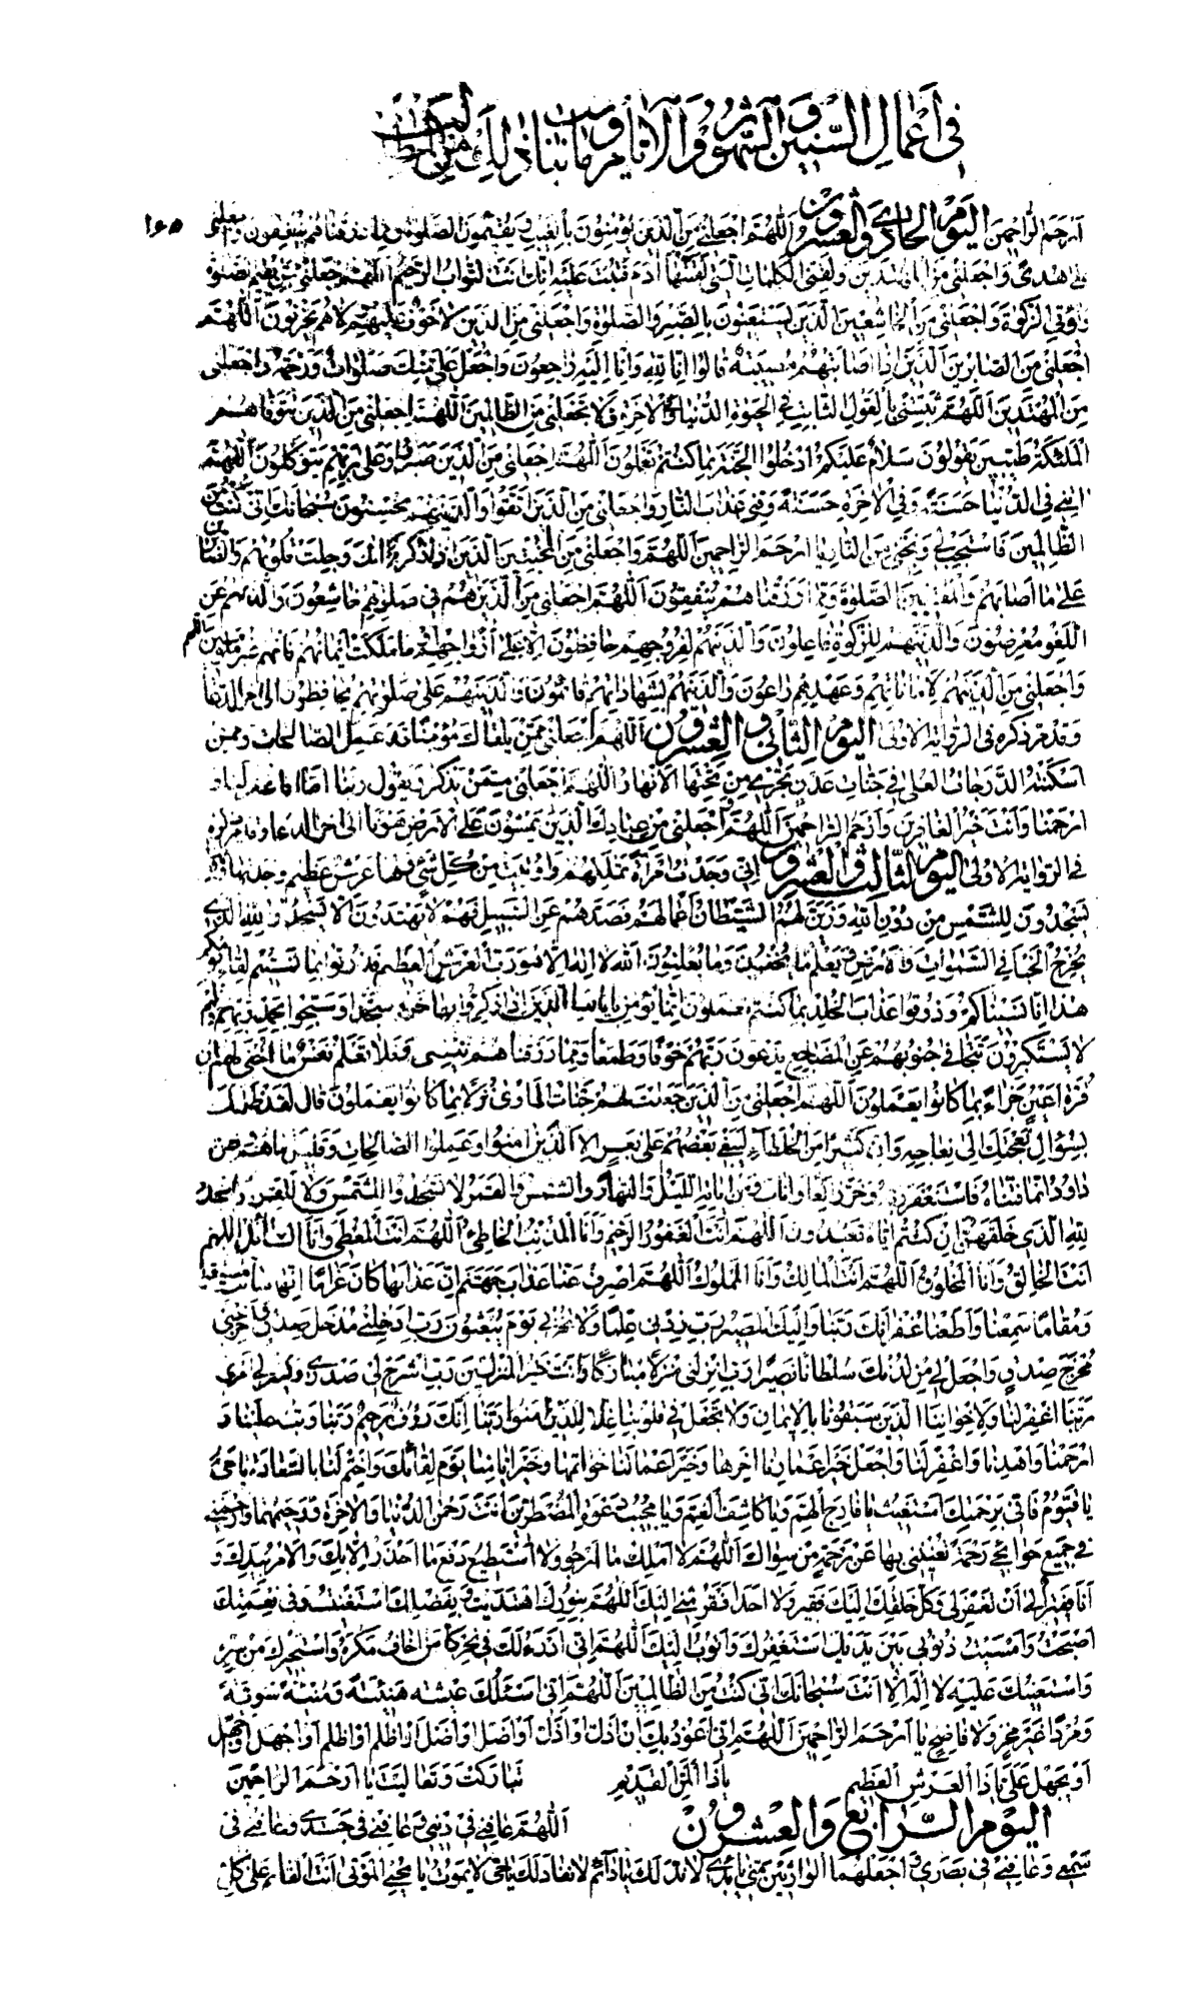 في أعمال السنين والشهور والأيام وما يناسب ذلك من المطالب
١٦٥
أرحم الراحمين اليوم الحادي والعشرون اللهم اجعلني من الذين يؤمنون بالغيب ويقيمون الصلوة ومما رزقناهم ينفقون واجعلني
على هدى واجعلني من المهتدين ولقني الكلمات التي لقنتها آدم فتبت عليه إنك أنت التواب الرحيم اللهم اجعلني ممن يقيم الصلوة
ويؤتي الزكوة واجعلني من الخاشعين الذين يستعينون بالصبر والصلوة واجعلني من الذين لا خوف عليهم ولا هم يحزنون اللهم
اجعلني من الصابرين الذين إذا أصابتهم مصيبة قالوا إنا لله وإنا إليه راجعون واجعل علي منك صلوات ورحمة واجعلني
من المهتدين اللهم ثبتني بالقول الثابت في الحيوة الدنيا وفي الآخرة ولا تجعلني من الظالمين اللهم اجعلني من الذين تتوفاهم
الملئكة طيبين يقولون سلام عليكم ادخلوا الجنة بما كنتم تعملون اللهم اجعلني من الذين صبروا وعلى ربهم يتوكلون اللهم
آتني في الدنيا حسنة وفي الآخرة حسنة وقني عذاب النار واجعلني من الذين اتقوا والذين هم محسنون سبحانك إني كنت من
الظالمين فاستجب لي ونجني من النار يا أرحم الراحمين اللهم واجعلني من المخبتين الذين إذا ذكر الله وجلت قلوبهم والصابرين
على ما أصابهم والمقيمين الصلوة ومما رزقناهم ينفقون اللهم اجعلني من الذين هم في صلوتهم خاشعون والذين هم عن
اللغو معرضون والذين هم للزكوة فاعلون والذين هم لفروجهم حافظون إلا على أزواجهم أو ما ملكت أيمانهم فإنهم غير ملومين
واجعلني من الذين هم لأماناتهم وعهدهم راعون والذين هم بشهاداتهم قائمون والذين هم على صلوتهم يحافظون إلى آخر الدعاء
وقد مر ذكره في الرواية الأولى اليوم الثاني والعشرون اللهم اجعلني ممن يلقاك مؤمنا قد عمل الصالحات وممن
أسكنته الدرجات العلى في جنات عدن تجري من تحتها الأنهار اللهم اجعلني ممن تذكر ويقول ربنا آمنا فاغفر لنا و
ارحمنا وأنت خير الغافرين وأرحم الراحمين اللهم اجعلني من عبادك الذين يمشون على الأرض هونا إلى آخر الدعاء وقد مر ذكره
في الرواية الأولى اليوم الثالث والعشرون إني وجدت امرأة تملكهم وأوتيت من كل شيء ولها عرش عظيم وجدتها وقومها
يسجدون للشمس من دون الله وزين لهم الشيطان أعمالهم فصدهم عن السبيل فهم لا يهتدون ألا يسجدوا لله الذي
يخرج الخبأ في السموات والأرض ويعلم ما تخفون وما تعلنون الله لا إله إلا هو رب العرش العظيم فذوقوا بما نسيتم لقاء يومكم
هذا إنا نسيناكم وذوقوا عذاب الخلد بما كنتم تعملون إنما يؤمن بآياتنا الذين إذا ذكروا بها خروا سجدا وسبحوا بحمد ربهم وهم
لا يستكبرون تتجافى جنوبهم عن المضاجع يدعون ربهم خوفا وطمعا ومما رزقناهم ينفقون فلا تعلم نفس ما أخفي لهم من
قرة أعين جزاء بما كانوا يعملون اللهم اجعلني من الذين جعلت لهم جنات المأوى نزلا بما كانوا يعملون قال لقد ظلمك
بسؤال نعجتك إلى نعاجه وإن كثيرا من الخلطاء ليبغي بعضهم على بعض إلا الذين آمنوا وعملوا الصالحات وقليل ما هم وظن
داود أنما فتناه فاستغفر ربه وخر راكعا وأناب ومن آياته الليل والنهار والشمس والقمر لا تسجدوا للشمس ولا للقمر واسجدوا
لله الذي خلقهن إن كنتم إياه تعبدون اللهم أنت الغفور الرحيم وأنا المذنب الخاطئ اللهم أنت المعطي وأنا السائل اللهم
أنت الخالق وأنا المخلوق اللهم أنت المالك وأنا المملوك اللهم اصرف عنا عذاب جهنم إن عذابها كان غراما إنها ساءت مستقرا
ومقاما سمعنا وأطعنا غفرانك ربنا وإليك المصير رب زدني علما ولا تخزني يوم يبعثون رب أدخلني مدخل صدق وأخرجني
مخرج صدق واجعل لي من لدنك سلطانا نصيرا رب أنزلني منزلا مباركا وأنت خير المنزلين رب اشرح لي صدري ويسر لي أمري
ربنا اغفر لنا ولإخواننا الذين سبقونا بالإيمان ولا تجعل في قلوبنا غلا للذين آمنوا ربنا إنك رؤف رحيم ربنا وتب علينا و
ارحمنا واهدنا واغفر لنا واجعل خير أعمارنا آخرها وخير أعمالنا خواتمها وخير أيامنا يوم لقائك واختم لنا بالسعادة يا حي
يا قيوم فإني برحمتك أستغيث يا فارج الهم ويا كاشف الغم ويا مجيب دعوة المضطرين أنت رحمن الدنيا والآخرة ورحيمهما ارحمني
في جميع حوائجي رحمة تغنيني بها عن رحمة من سواك اللهم لا أملك ما أرجو ولا أستطيع دفع ما أحذر إلا بك والأمر بيدك و
أنا فقير إلى أن تغفر لي وكل خلقك إليك فقير ولا أحد أفقر مني إليك اللهم بنورك اهتديت وبفضلك استغنيت وفي نعمتك
أصبحت وأمسيت ذنوبي بين يديك أستغفرك وأتوب إليك اللهم إني أدرء بك في نحر كل من أخاف مكره وأستجيرك من شره
وأستعينك عليه لا إله إلا أنت سبحانك إني كنت من الظالمين اللهم إني أسئلك عيشة هنيئة وميتة سوية
ومردا غير مخز ولا فاضح يا أرحم الراحمين اللهم إني أعوذ بك أن أذل أو أذل أو أضل أو أضل أو أظلم أو أظلم أو أجهل أو يجهل
أو يجهل علي يا ذا العرش العظيم يا ذا المن القديم تباركت وتعاليت يا أرحم الراحمين
اليوم الرابع والعشرون اللهم عافني في ديني وعافني في جسدي وعافني في
سمعي وعافني في بصري واجعلهما الوارثين مني يا بدئ لا ند لك يا دائم لا نفاد لك يا حي لا يموت يا محيي الموتى أنت القائم على كل